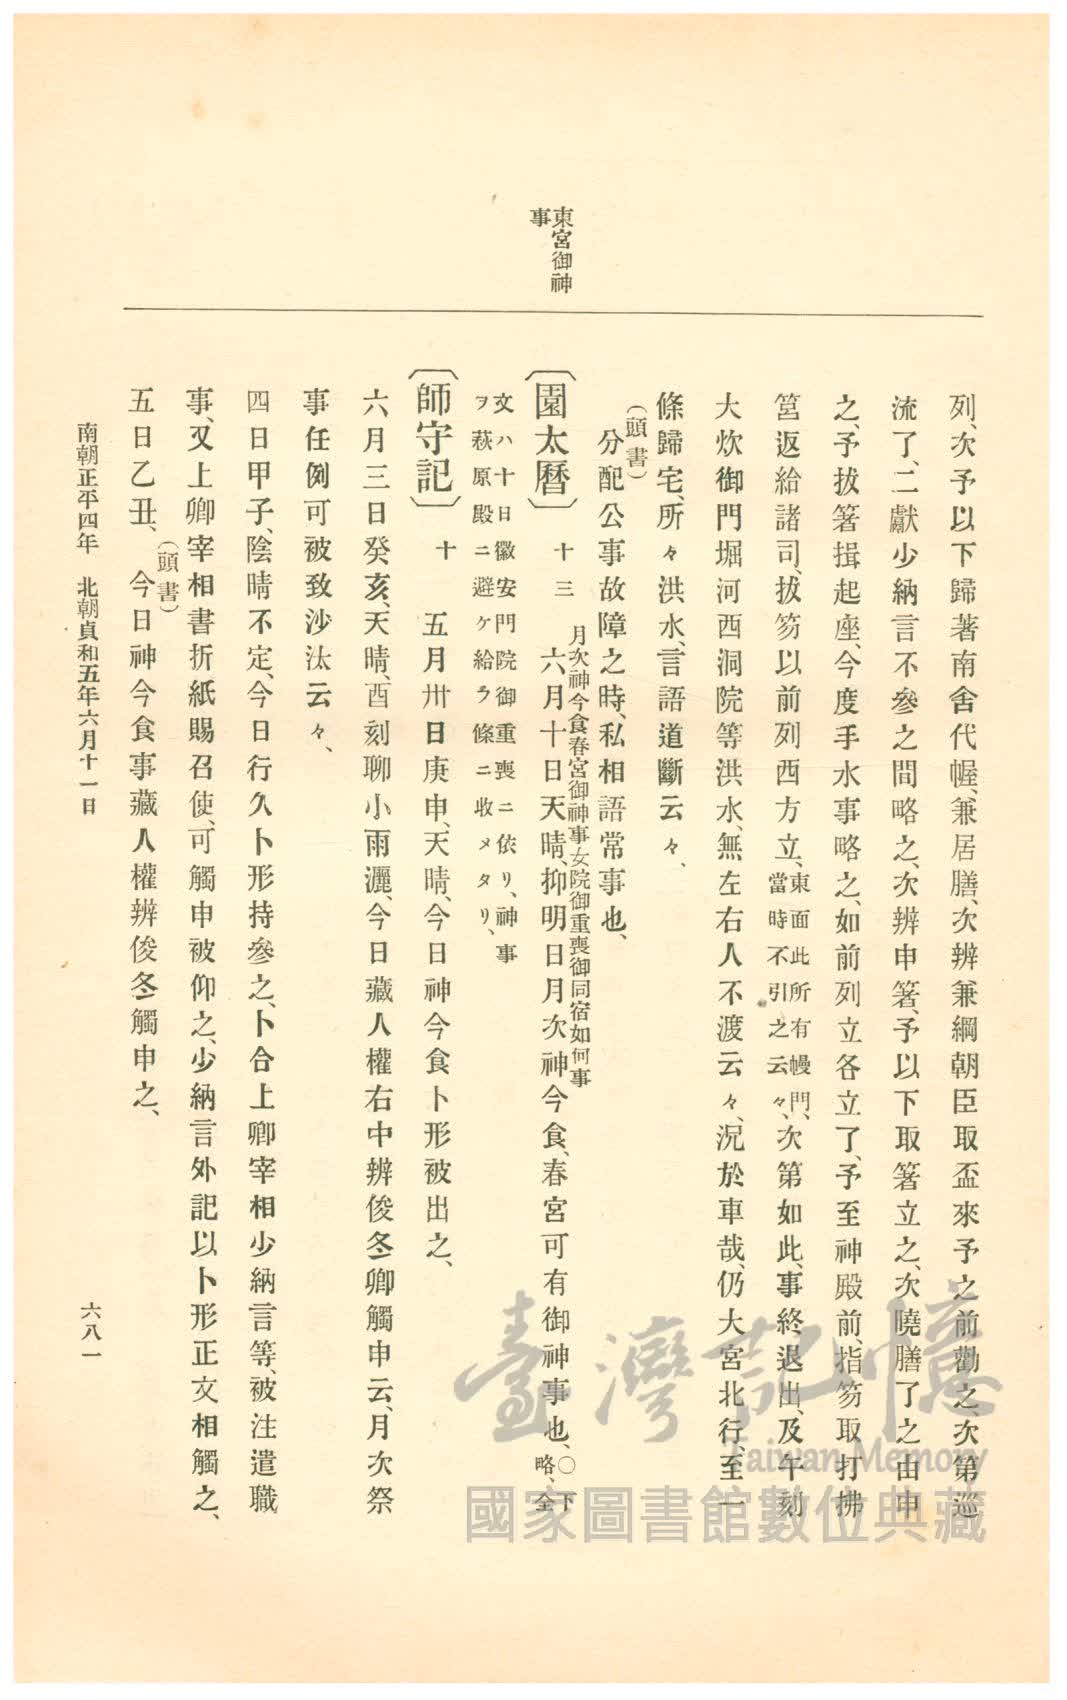 東宮御神
事
列、次予以下歸著南舍代幄、兼居膳、次辨兼綱朝臣取盃來予之前勸之、次第巡
流了、二獻少納言不參之間略之、次辨申箸、予以下取箸立之、次曉膳了之由申
之、予拔箸揖起座、今度手水事略之、如前列立各立了、予至神殿前、指笏取打拂
筥返給諸司、拔笏以前列西方立、東面此所有幔門、
當時不引之云々、次第如此、事終退出、及午刻
大炊御門堀河西洞院等洪水、無左右人不渡云々、況於車哉、仍大宮北行、至一
條歸宅、所々洪水、言語道斷云々、
(頭書)
分配公事故障之時、私相語常事也、
月次神今食春宮御神事女院御重喪御同宿如何事
〔園太曆〕 十三 六月十日天晴、抑明日月次神今食、春宮可有御神事也、○下
略、全
文ハ十日徽安門院御重喪ニ依リ、神事
ヲ萩原殿ニ避ケ給ラ條ニ收メタリ、
〔師守記〕 十 五月卅日庚申、天晴、今日神今食卜形被出之、
六月三日癸亥、天晴、酉刻聊小雨灑、今日藏人權右中辨俊冬卿觸申云、月次祭
事任例可被致沙汰云々、
四日甲子、陰晴不定、今日行久卜形持參之、卜合上卿宰相少納言等、被注遣職
事、又上卿宰相書折紙賜召使、可觸申被仰之、少納言外記以卜形正文相觸之、
(頭書)
五日乙丑、 今日神今食事藏人權辨俊冬觸申之、
南朝正平四年 北朝貞和五年六月十一日
六八一
臺灣記憶
Taiwan Memory
國家圖書館數位典藏